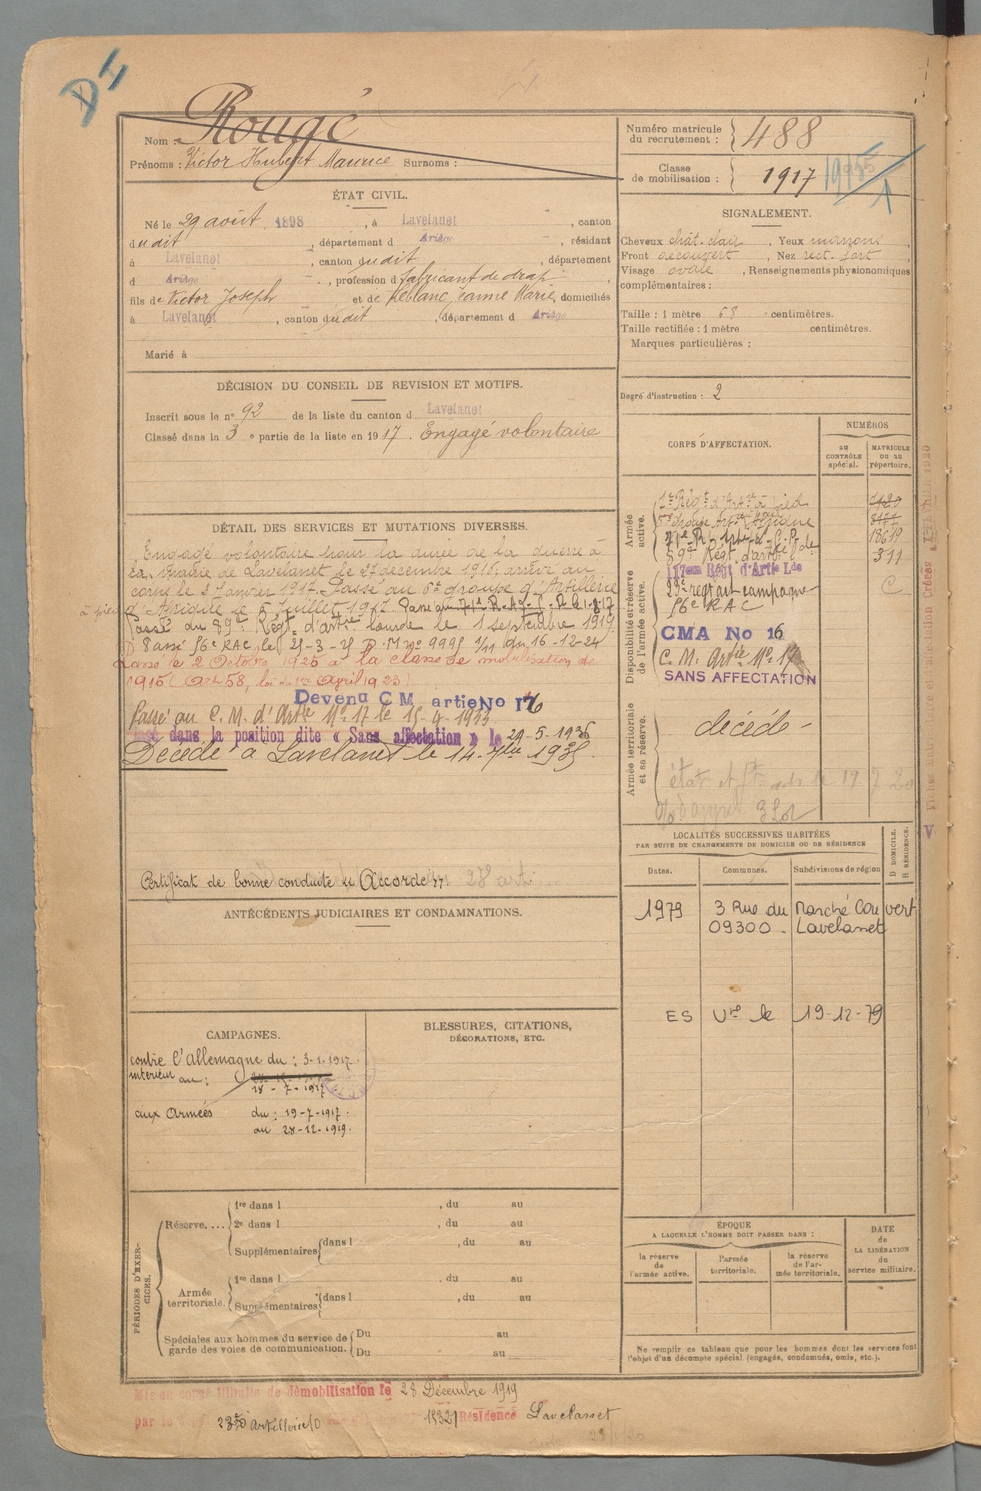 DI
Nom : Rougé
Prénoms : Victor Hubert Maurice Surnoms :
Numéro matricule du recrutement : 488
Classe de mobilisation : 1917
ÉTAT CIVIL.
Né le 29 août 1898, à Lavelanet, canton
dudit, département d Ariège, résidant
à Lavelanet, canton dudit, département
d Ariège, profession d fabricant de drap
fils de Victor Joseph et de Leblanc Jeanne Marie, domiciliés
à Lavelanet, canton dudit, département d Ariège
Marié à
SIGNALEMENT.
Cheveux chât. clair. Yeux marrons,
Front découvert. Nez rect. fort
Visage ovale, Renseignements physionomiques
complémentaires :
Taille : 1 mètre 68 centimètres.
Taille rectifiée : 1 mètre centimètres.
Marques particulières :
Degré d'instruction : 2
DÉCISION DU CONSEIL DE REVISION ET MOTIFS.
Inscrit sous le n° 92 de la liste du canton d Lavelanet
Classé dans la 3e partie de la liste en 1917. Engagé volontaire
DÉTAIL DES SERVICES ET MUTATIONS DIVERSES.
Engagé volontaire pour la durée de la guerre à
la mairie de Lavelanet le 27 décembre 1916, arrivé au
corps le 3 Janvier 1917. Passé au 6e groupe d'Artillerie
à pied d'Afrique le 5 Juillet 1917. Passé au
Passé au 89e Régt. d'artie lourde le 1 septembre 1919
Passé 56e RAC le 25-3-25 D.M n° 9995 1/11 du 16-12-24
Passé le 2 Octobre 1925 à la classe de mobilisation de
1915 (Art 58, loi du 1er April 1923)
Devenu C M artie No 16
Passé au C. M. d'Artie N° 17 le 15-4-1933
dans la position dite « Sans affectation » le 29-5-1935
Décédé à Lavelanet le 14-7bre 1935.
Certificat de bonne conduite « Accordé »
ANTÉCÉDENTS JUDICIAIRES ET CONDAMNATIONS.
CORPS D'AFFECTATION.
NUMÉROS
AU CONTRÔLE spécial.
MATRICULE OU AU répertoire.
Armée active.
1er Régt d'Artie à pied
6e groupe Artie d'Afrique
18619
89e Régt d'artie lde 311
117em Régt d'Artie Lde
Disponibilité et réserve de l'armée active.
23e régt art campagne C
56e RAC
CMA No 16
C. M. Artie N° 17
SANS AFFECTATION
Armée territoriale et sa réserve.
décédé -
LOCALITÉS SUCCESSIVES HABITÉES
PAR SUITE DE CHANGEMENTS DE DOMICILE OU DE RÉSIDENCE
Dates. Communes. Subdivisions de région
D DOMICILE. R RÉSIDENCE.
1979 3 Rue du Marché Couvert
09300 - Lavelanet
ES Vre le 19-12-79
CAMPAGNES.
contre l'Allemagne du : 3-1-1917.
intérieur au : 18-7-1917
aux Armées du : 19-7-1917.
au 28-12-1919.
BLESSURES, CITATIONS,
DÉCORATIONS, ETC.
PÉRIODES D'EXERCICES.
Réserve.... 1re dans l, du au
2e dans l, du au
Supplémentaires dans l, du au
Armée territoriale. 1re dans l, du au
Supplémentaires dans l, du au
Spéciales aux hommes du service de garde des voies de communication. Du au
Du au
ÉPOQUE
A LAQUELLE L'HOMME DOIT PASSER DANS :
la réserve de l'armée active.
l'armée territoriale.
la réserve de l'armée territoriale.
DATE de LA LIBÉRATION du service militaire.
Ne remplir ce tableau que pour les hommes dont les services font
l'objet d'un décompte spécial (engagés, condamnés, omis, etc.).
Mis en congé illimité de démobilisation le 28 Décembre 1919
par le artillerie Résidence Lavelanet